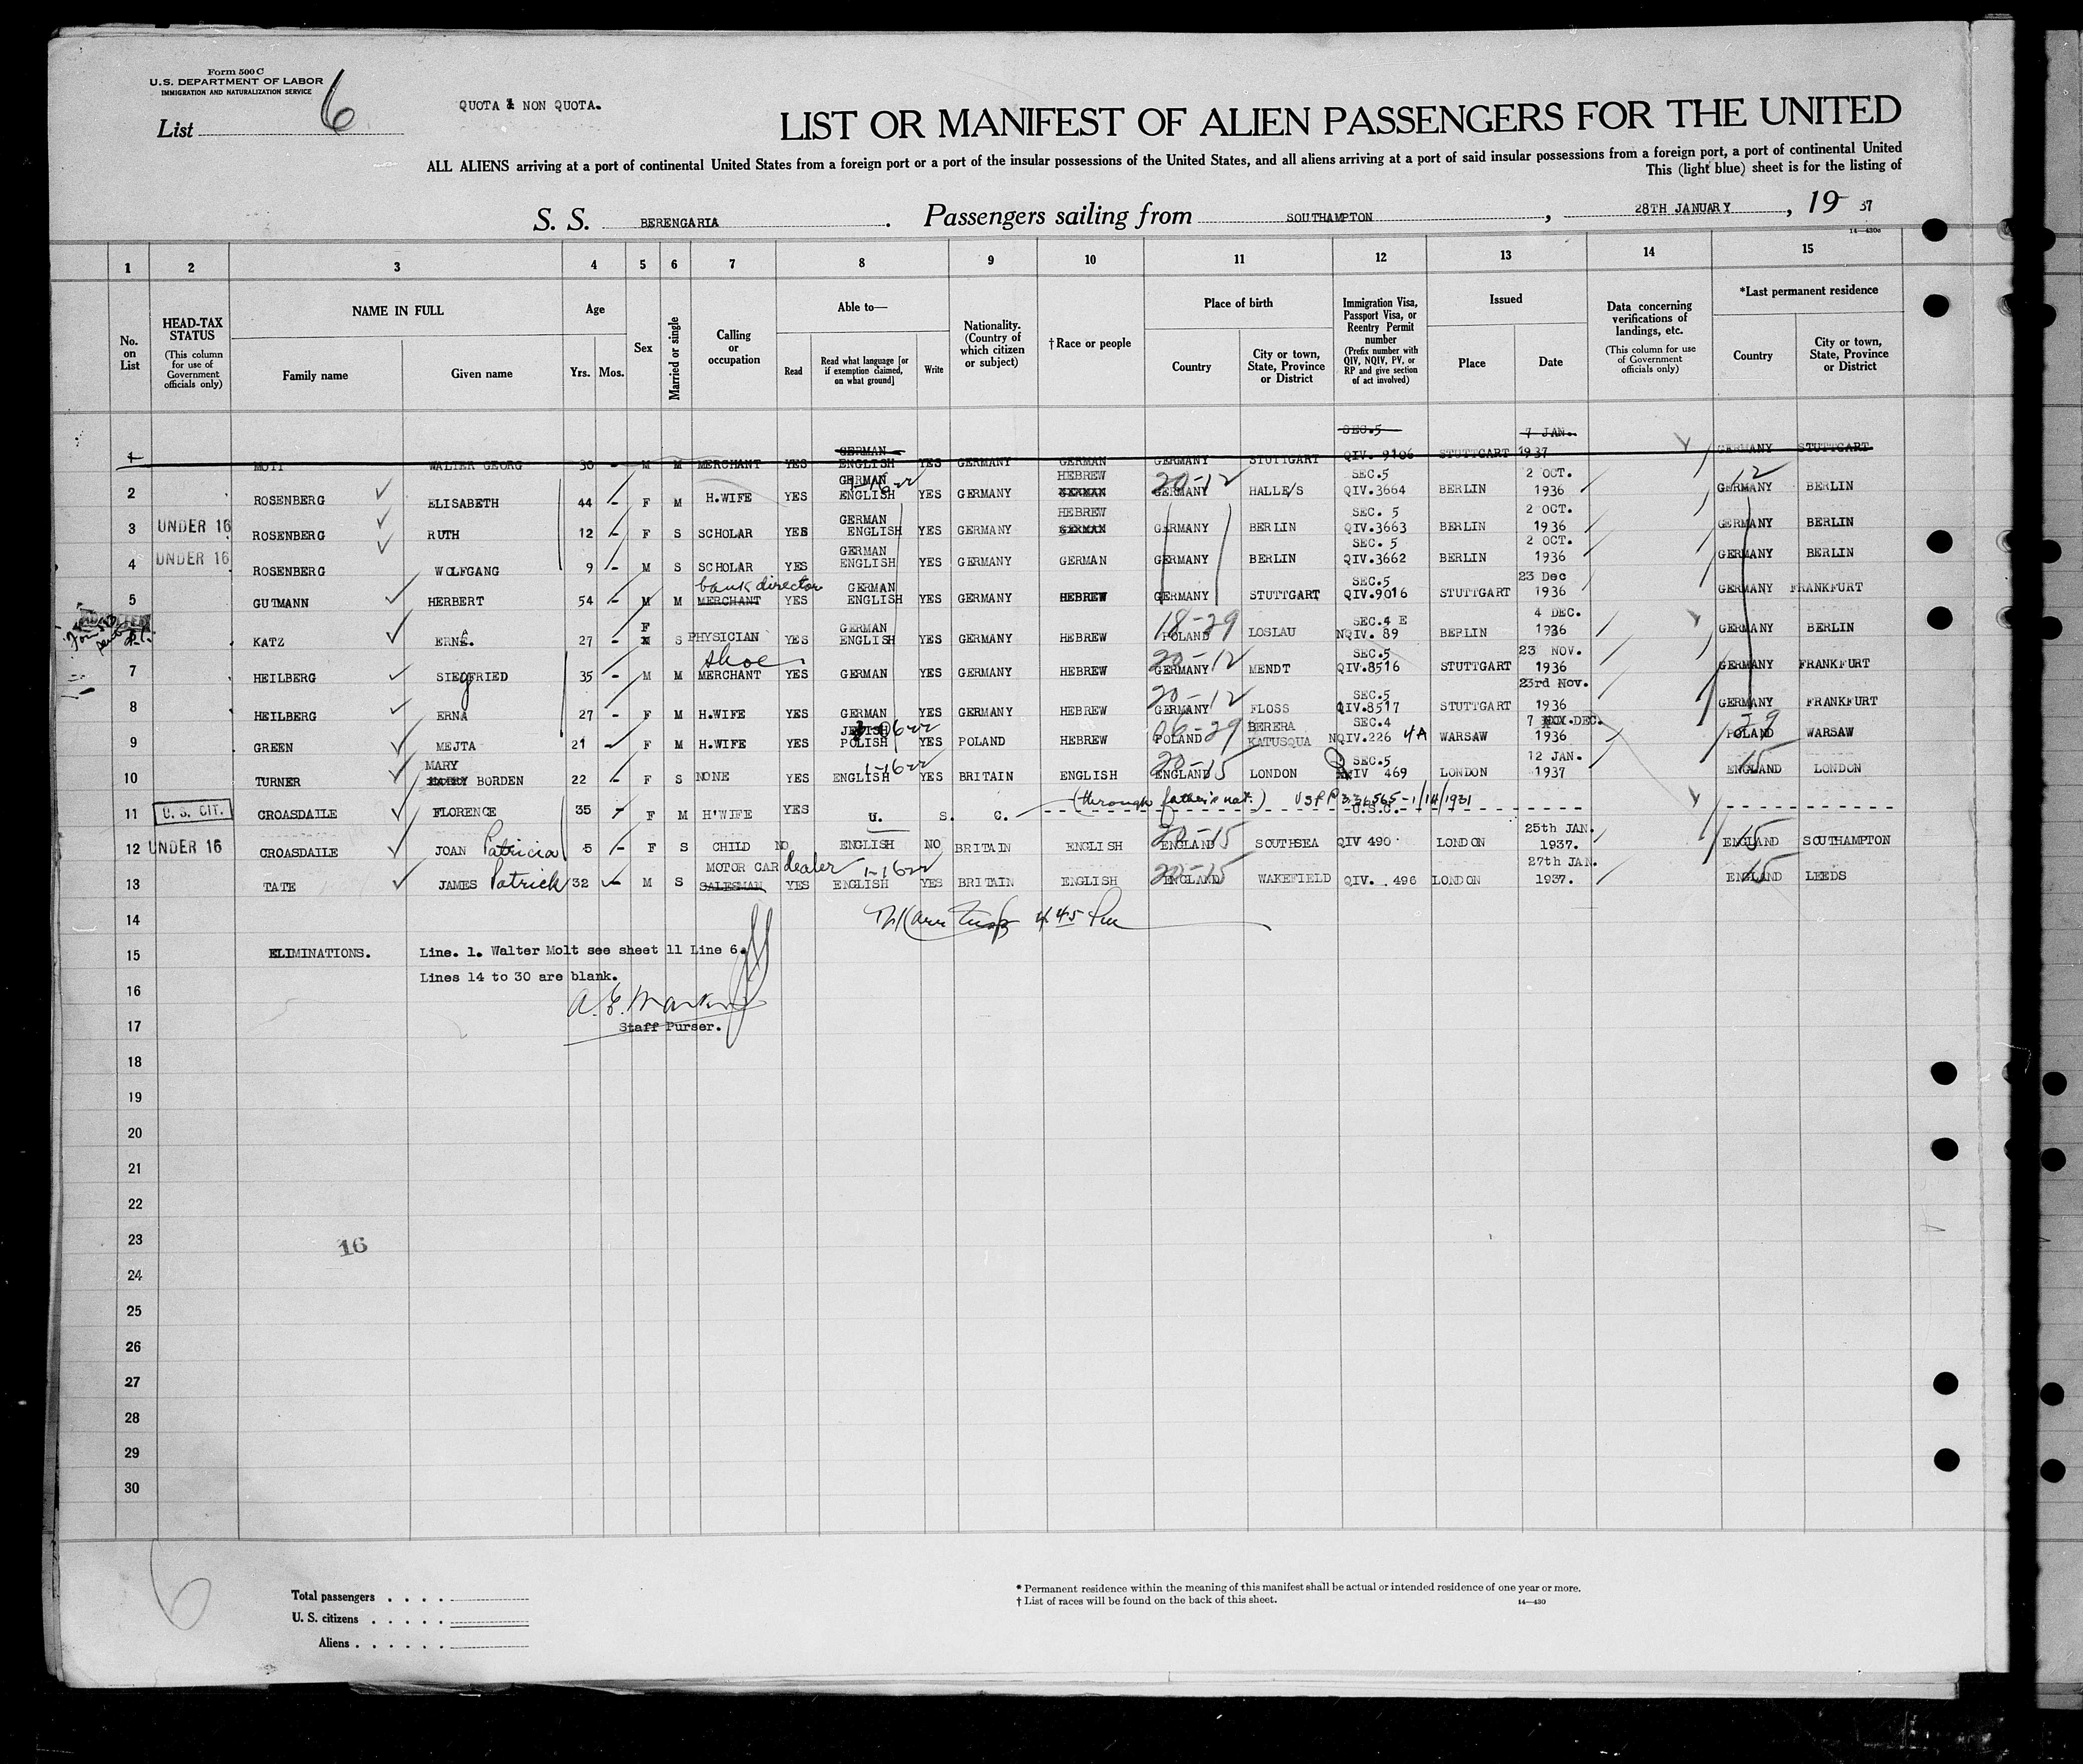 Form 500 C
U.S. DEPARTMENT OF LABOR
IMMIGRATION AND NATURALIZATION SERVICE
List 6
QUOTA & NON QUOTA.
LIST OR MANIFEST OF ALIEN PASSENGERS FOR THE UNITED
ALL ALIENS arriving at a port of continental United States from a foreign port or a port of the insular possessions of the United States, and all aliens arriving at a port of said insular possessions from a foreign port, a port of continental United
This (light blue) sheet is for the listing of
S. S. BERENGARIA. Passengers sailing from SOUTHAMPTON, 28TH JANUARY, 19 37
14—430c
1 2 3 4 5 6 7 8 9 10 11 12 13 14 15
No. on List
HEAD-TAX STATUS
(This column for use of Government officials only)
NAME IN FULL
Family name
Given name
Age
Yrs. Mos.
Sex
Married or single
Calling or occupation
Able to—
Read
Read what language [or if exemption claimed, on what ground]
Write
Nationality. (Country of which citizen or subject)
†Race or people
Place of birth
Country
City or town, State, Province or District
Immigration Visa, Passport Visa, or Reentry Permit number
(Prefix number with QIV, NQIV, PV, or RP and give section of act involved)
Issued
Place
Date
Data concerning verifications of landings, etc.
(This column for use of Government officials only)
*Last permanent residence
Country
City or town, State, Province or District
SEC.5 7 JAN.
GERMAN
WALTER GEORG 30 - M M MERCHANT YES ENGLISH YES GERMANY GERMAN GERMANY STUTTGART QIV. 9106 STUTTGART 1937 GERMANY STUTTGART
GERMAN 1-16 HEBREW 20-12 SEC.5 2 OCT. 12
2 ROSENBERG ELISABETH 44 - F M H.WIFE YES ENGLISH YES GERMANY GERMAN GERMANY HALLE/S QIV.3664 BERLIN 1936 GERMANY BERLIN
GERMAN HEBREW SEC. 5 2 OCT.
3 UNDER 16 ROSENBERG RUTH 12 - F S SCHOLAR YES ENGLISH YES GERMANY GERMAN GERMANY BERLIN QIV.3663 BERLIN 1936 GERMANY BERLIN
GERMAN SEC. 5 2 OCT.
4 UNDER 16 ROSENBERG WOLFGANG 9 - M S SCHOLAR YES ENGLISH YES GERMANY GERMAN GERMANY BERLIN QIV.3662 BERLIN 1936 GERMANY BERLIN
bank director GERMAN SEC.5 23 Dec
5 GUTMANN HERBERT 54 - M M MERCHANT YES ENGLISH YES GERMANY HEBREW GERMANY STUTTGART QIV.9016 STUTTGART 1936 GERMANY FRANKFURT
F GERMAN 18-29 SEC.4 E 4 DEC.
KATZ ERNA. 27 - S PHYSICIAN YES ENGLISH YES GERMANY HEBREW POLAND LOSLAU NQIV. 89 BERLIN 1936 GERMANY BERLIN
shoe 20-12 SEC.5 23 NOV.
7 HEILBERG SIEGFRIED 35 - M M MERCHANT YES GERMAN YES GERMANY HEBREW GERMANY MENDT QIV.8516 STUTTGART 1936 GERMANY FRANKFURT
20-12 SEC.5 23rd Nov.
8 HEILBERG ERNA 27 - F M H.WIFE YES GERMAN YES GERMANY HEBREW GERMANY FLOSS QIV.8517 STUTTGART 1936 GERMANY FRANKFURT
06-29 BERERA SEC.4 7 DEC. 29
9 GREEN MEJTA 21 - F M H.WIFE YES POLISH YES POLAND HEBREW POLAND KATUSQUA NQIV.226 4A WARSAW 1936 POLAND WARSAW
MARY 1-16 20-15 SEC.5 12 JAN. 15
10 TURNER BORDEN 22 - F S NONE YES ENGLISH YES BRITAIN ENGLISH ENGLAND LONDON QIV 469 LONDON 1937 ENGLAND LONDON
(through father's nat.) USPP 336565-1/14/1931
11 U. S. CIT. CROASDAILE FLORENCE 35 - F M H'WIFE YES U. S. C. U.S.C.
20-15 25th JAN. 15
12 UNDER 16 CROASDAILE JOAN Patricia 5 - F S CHILD NO ENGLISH NO BRITAIN ENGLISH ENGLAND SOUTHSEA QIV 490 LONDON 1937. ENGLAND SOUTHAMPTON
MOTOR CAR dealer 1-16 20-15 27th JAN. 15
13 TATE JAMES Patrick 32 - M S SALESMAN YES ENGLISH YES BRITAIN ENGLISH ENGLAND WAKEFIELD QIV. 496 LONDON 1937. ENGLAND LEEDS
14
4 45 Pm
15 ELIMINATIONS. Line. 1. Walter Molt see sheet 11 Line 6.
Lines 14 to 30 are blank.
16
17 Staff Purser.
18
19
20
21
22
23
16
24
25
26
27
28
29
30
6
Total passengers
U. S. citizens
Aliens
* Permanent residence within the meaning of this manifest shall be actual or intended residence of one year or more.
† List of races will be found on the back of this sheet.
14—430